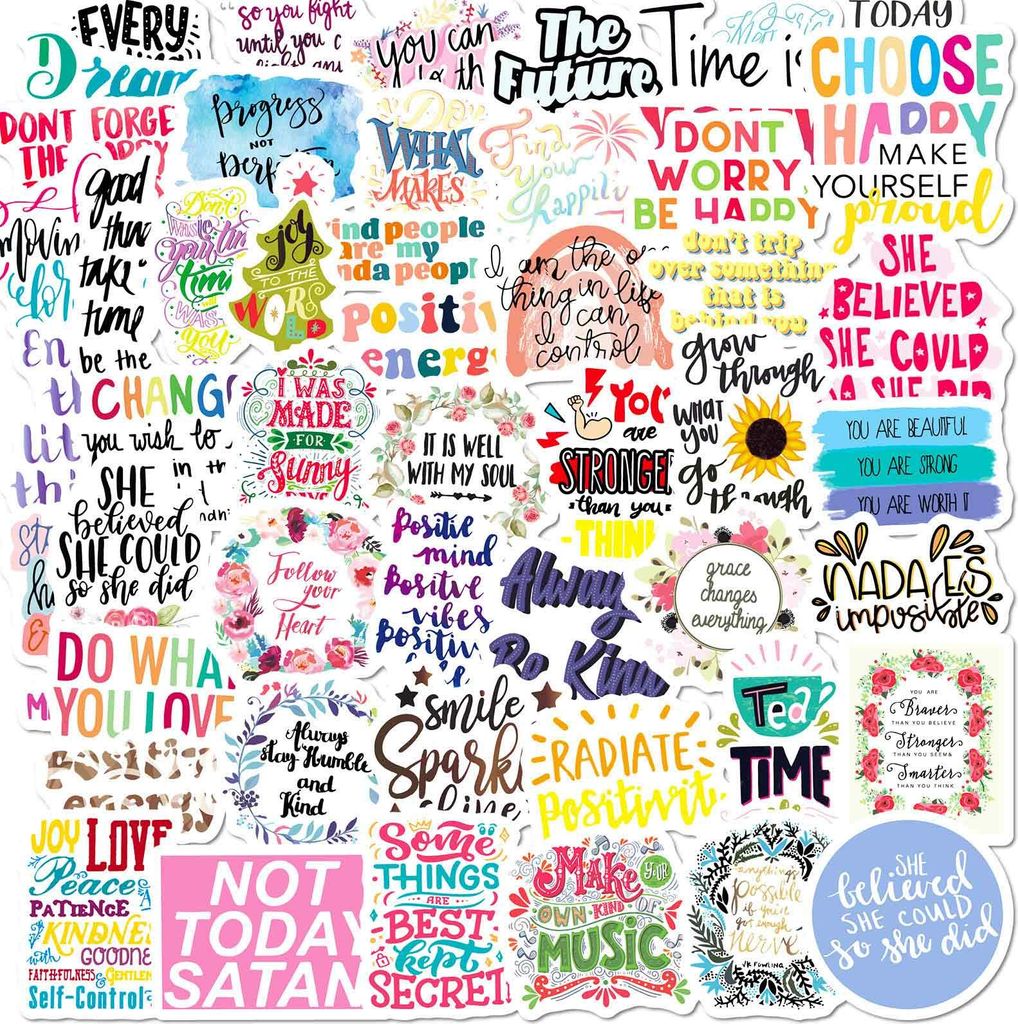 EVERY
Dream
so you fight
until you c
you can
The
Future
Time is
TODAY
CHOOSE
HAPPY
MAKE
YOURSELF
proud
DONT FORGE
THE HAPPY
progress
NOT
perfection
Do
WHAT
MAKES
Find
your
happily
DONT
WORRY
BE HAPPY
movin
for
good
thin
take
time
Dont
Waste
your tim
or
time
WILL
Waste
You
joy
TO THE
WORLD
kind people
are my
kinda peopl
positiv
energy
I am the o
thing in life
I can
control
don't trip
over something
that is
behind you
SHE
BELIEVED
SHE COULD
SO SHE DID
En
be the
CHANGE
you wish to
in th
lit
th
I WAS
MADE
FOR
Sunny
DAYS
IT IS WELL
WITH MY SOUL
YOU
are
STRONGER
than you
THINK
grow
through
WHAT
YOU
go
through
YOU ARE BEAUTIFUL
YOU ARE STRONG
YOU ARE WORTH IT
SHE
believed
SHE COULD
so she did
Follow
your
Heart
Positive
mind
Positive
vibes
Positiv
Alway
Be Kind
grace
changes
everything
NADA ES
imposible
DO WHAT
YOU LOVE
positive
energy
Always
stay Humble
and
Kind
smile
Sparkl
shine
RADIATE
positivity
Tea
TIME
YOU ARE
Braver
THAN YOU BELIEVE
Stronger
THAN YOU SEEM
Smarter
THAN YOU THINK
JOY LOVE
Peace
PATIENCE
KINDNES
with GOODNE
FAITHFULNESS & GENTLEN
Self-Control
NOT
TODAY
SATAN
Some
THINGS
ARE
BEST
kept
SECRET
Make YOUR
OWN KIND OF
MUSIC
anything's
possible
if you've
got enough
nerve
JK ROWLING
SHE
believed
SHE COULD
so she did